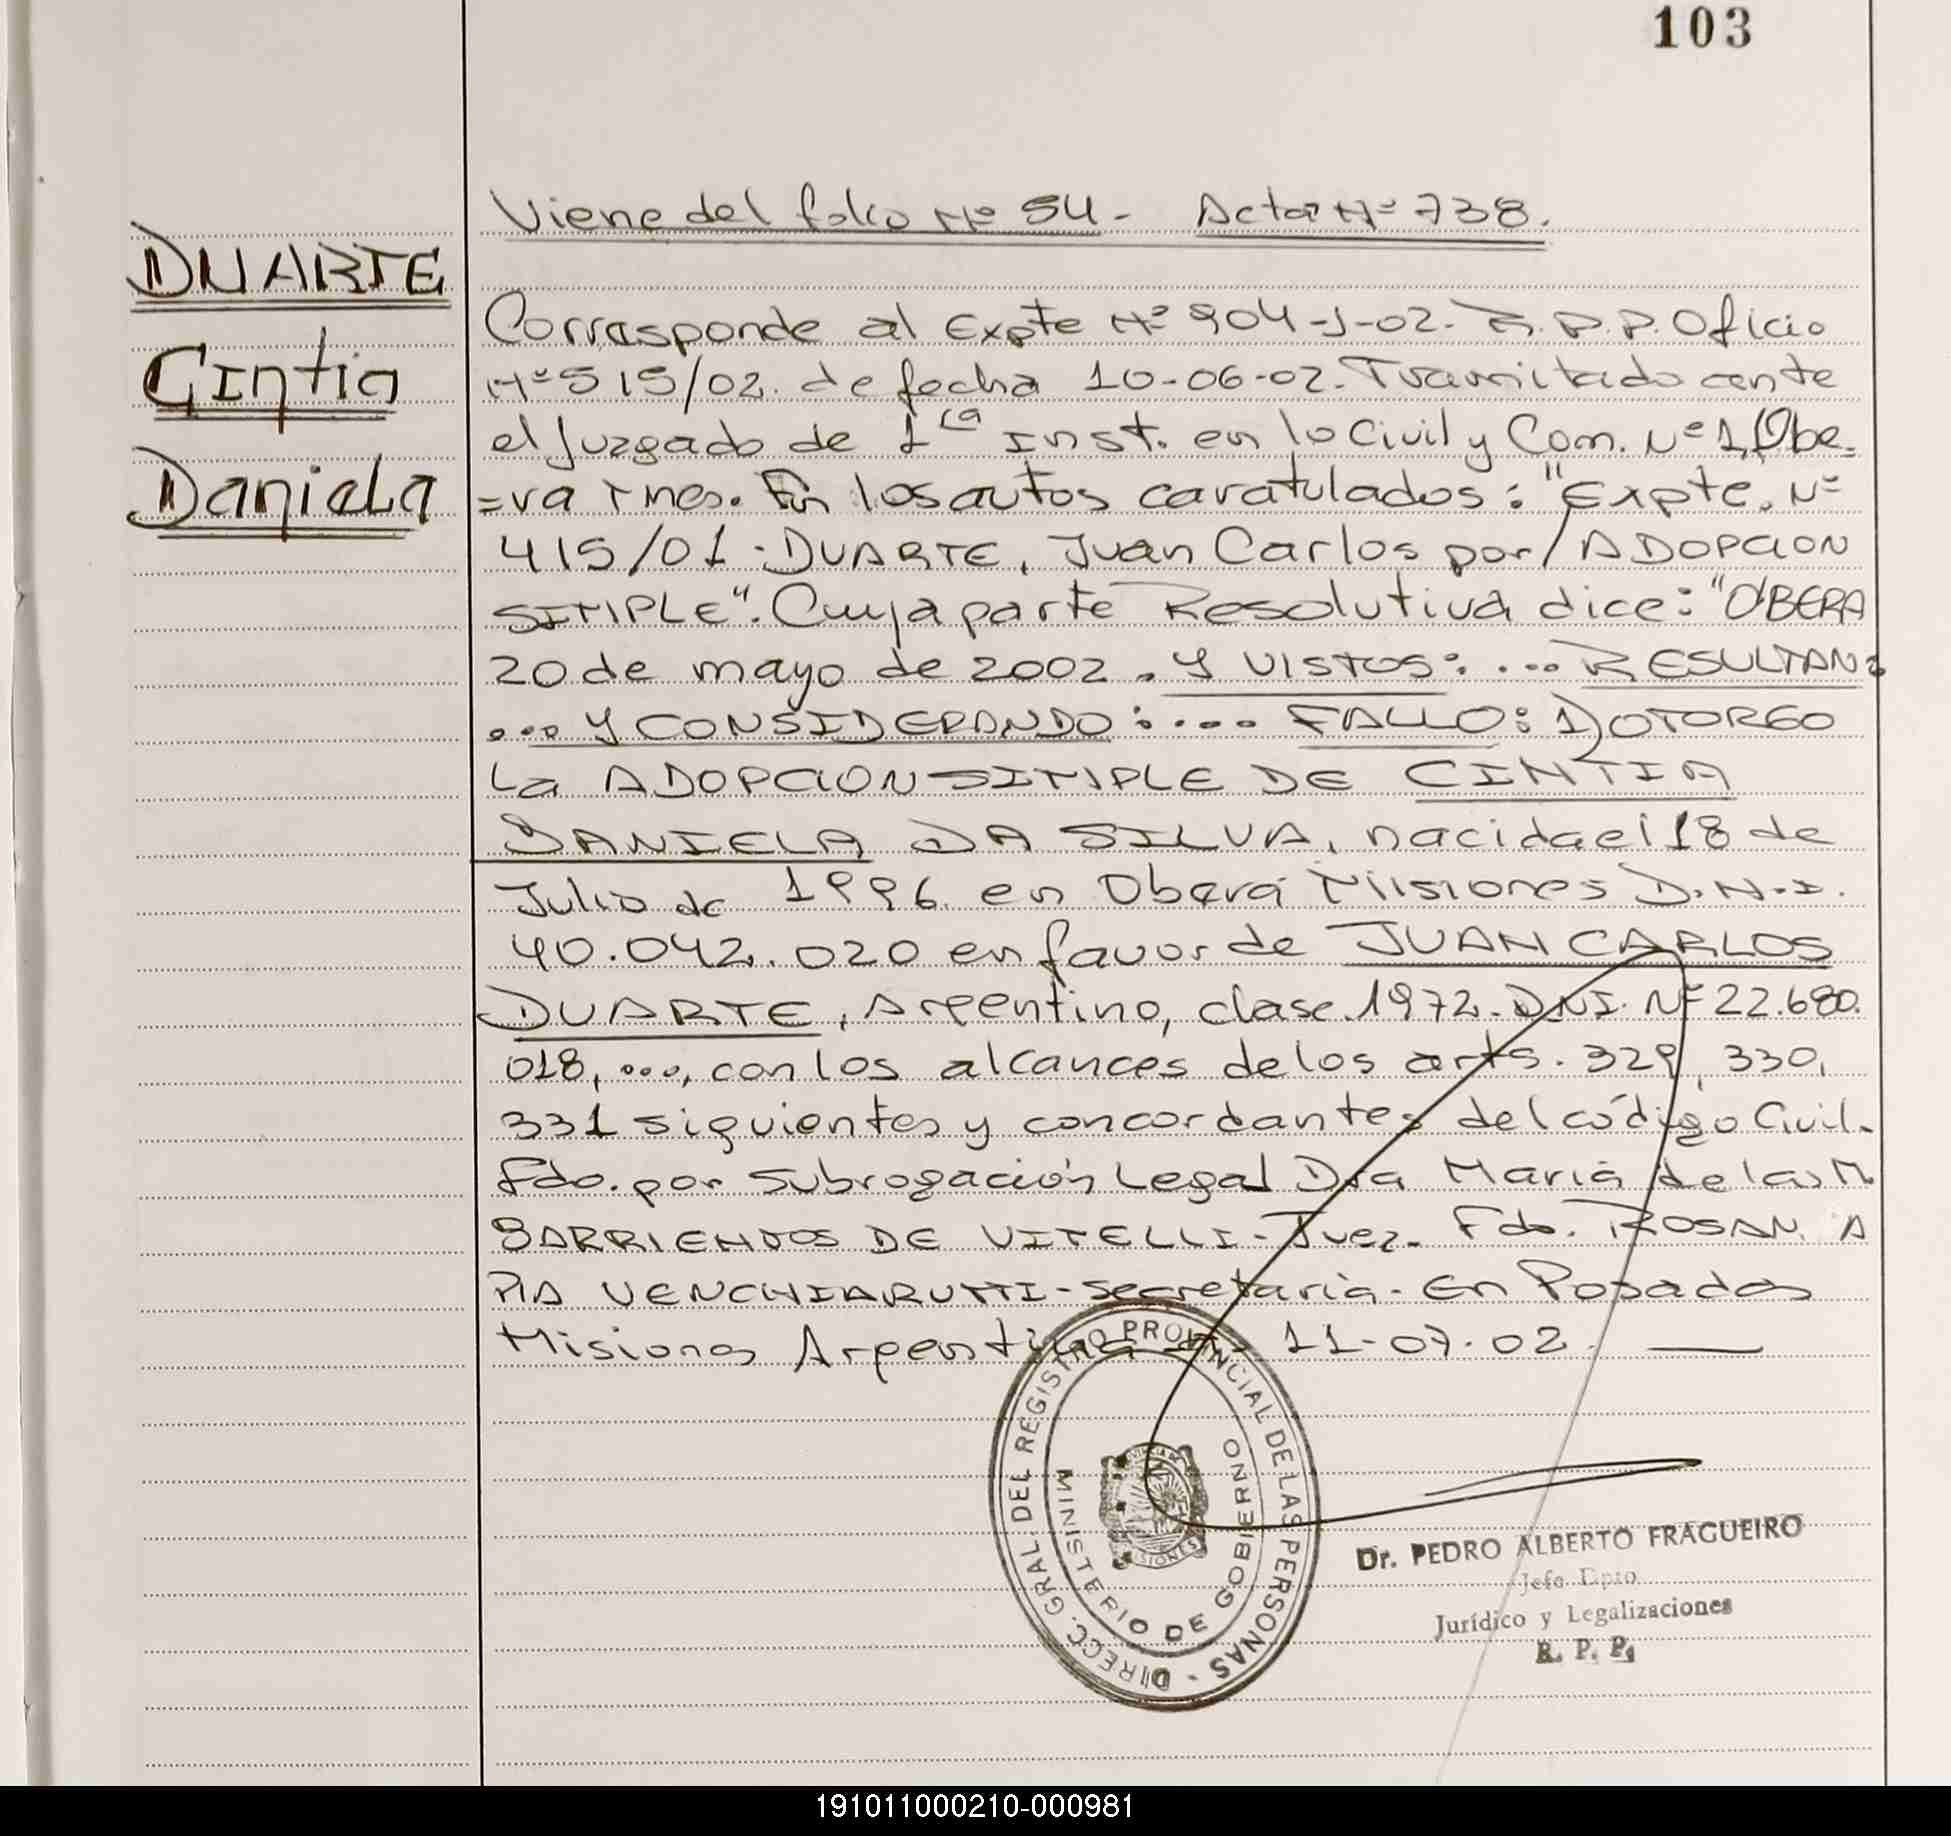 103
Viene del folio Nº 54 - Acta Nº 738.
DUARTE
Cintia
Daniela
Corresponde al Expte Nº 904-J-02. R.P.P. Oficio
Nº 515/02. de fecha 10-06-02. Tramitado ante
el Juzgado de 1ra Inst. en lo Civil y Com. Nº 1, Obe-
=ra Mnes. En los autos caratulados: "Expte. Nº
415/01 - DUARTE, Juan Carlos por/ADOPCION
SIMPLE". Cuya parte Resolutiva dice: "OBERA
20 de mayo de 2002. Y VISTOS: ... RESULTAN:
... Y CONSIDERANDO: .... FALLO: 1) OTORGO
La ADOPCION SIMPLE DE CINTIA
DANIELA DA SILVA, nacida el 18 de
Julio de 1996 en Oberá Misiones D.N.I.
40.042.020 en favor de JUAN CARLOS
DUARTE, Argentino, clase 1972. DNI. Nº 22.680.
018, ..., con los alcances de los arts. 329, 330,
331 siguientes y concordantes del código Civil.
Fdo. por Subrogación Legal Dra María de las M.
BARRIENTOS DE VITELLI - Juez. Fdo. ROSAN A
PIA VENCHIARUTTI - Secretaria - En Posadas
Misiones Argentina 11-07-02.
DIRECC. GRAL. DEL REGISTRO PROVINCIAL DE LAS PERSONAS -
MINISTERIO DE GOBIERNO
MISIONES
Dr. PEDRO ALBERTO FRAGUEIRO
Jefe Dpto
Jurídico y Legalizaciones
R. P. P.
191011000210-000981